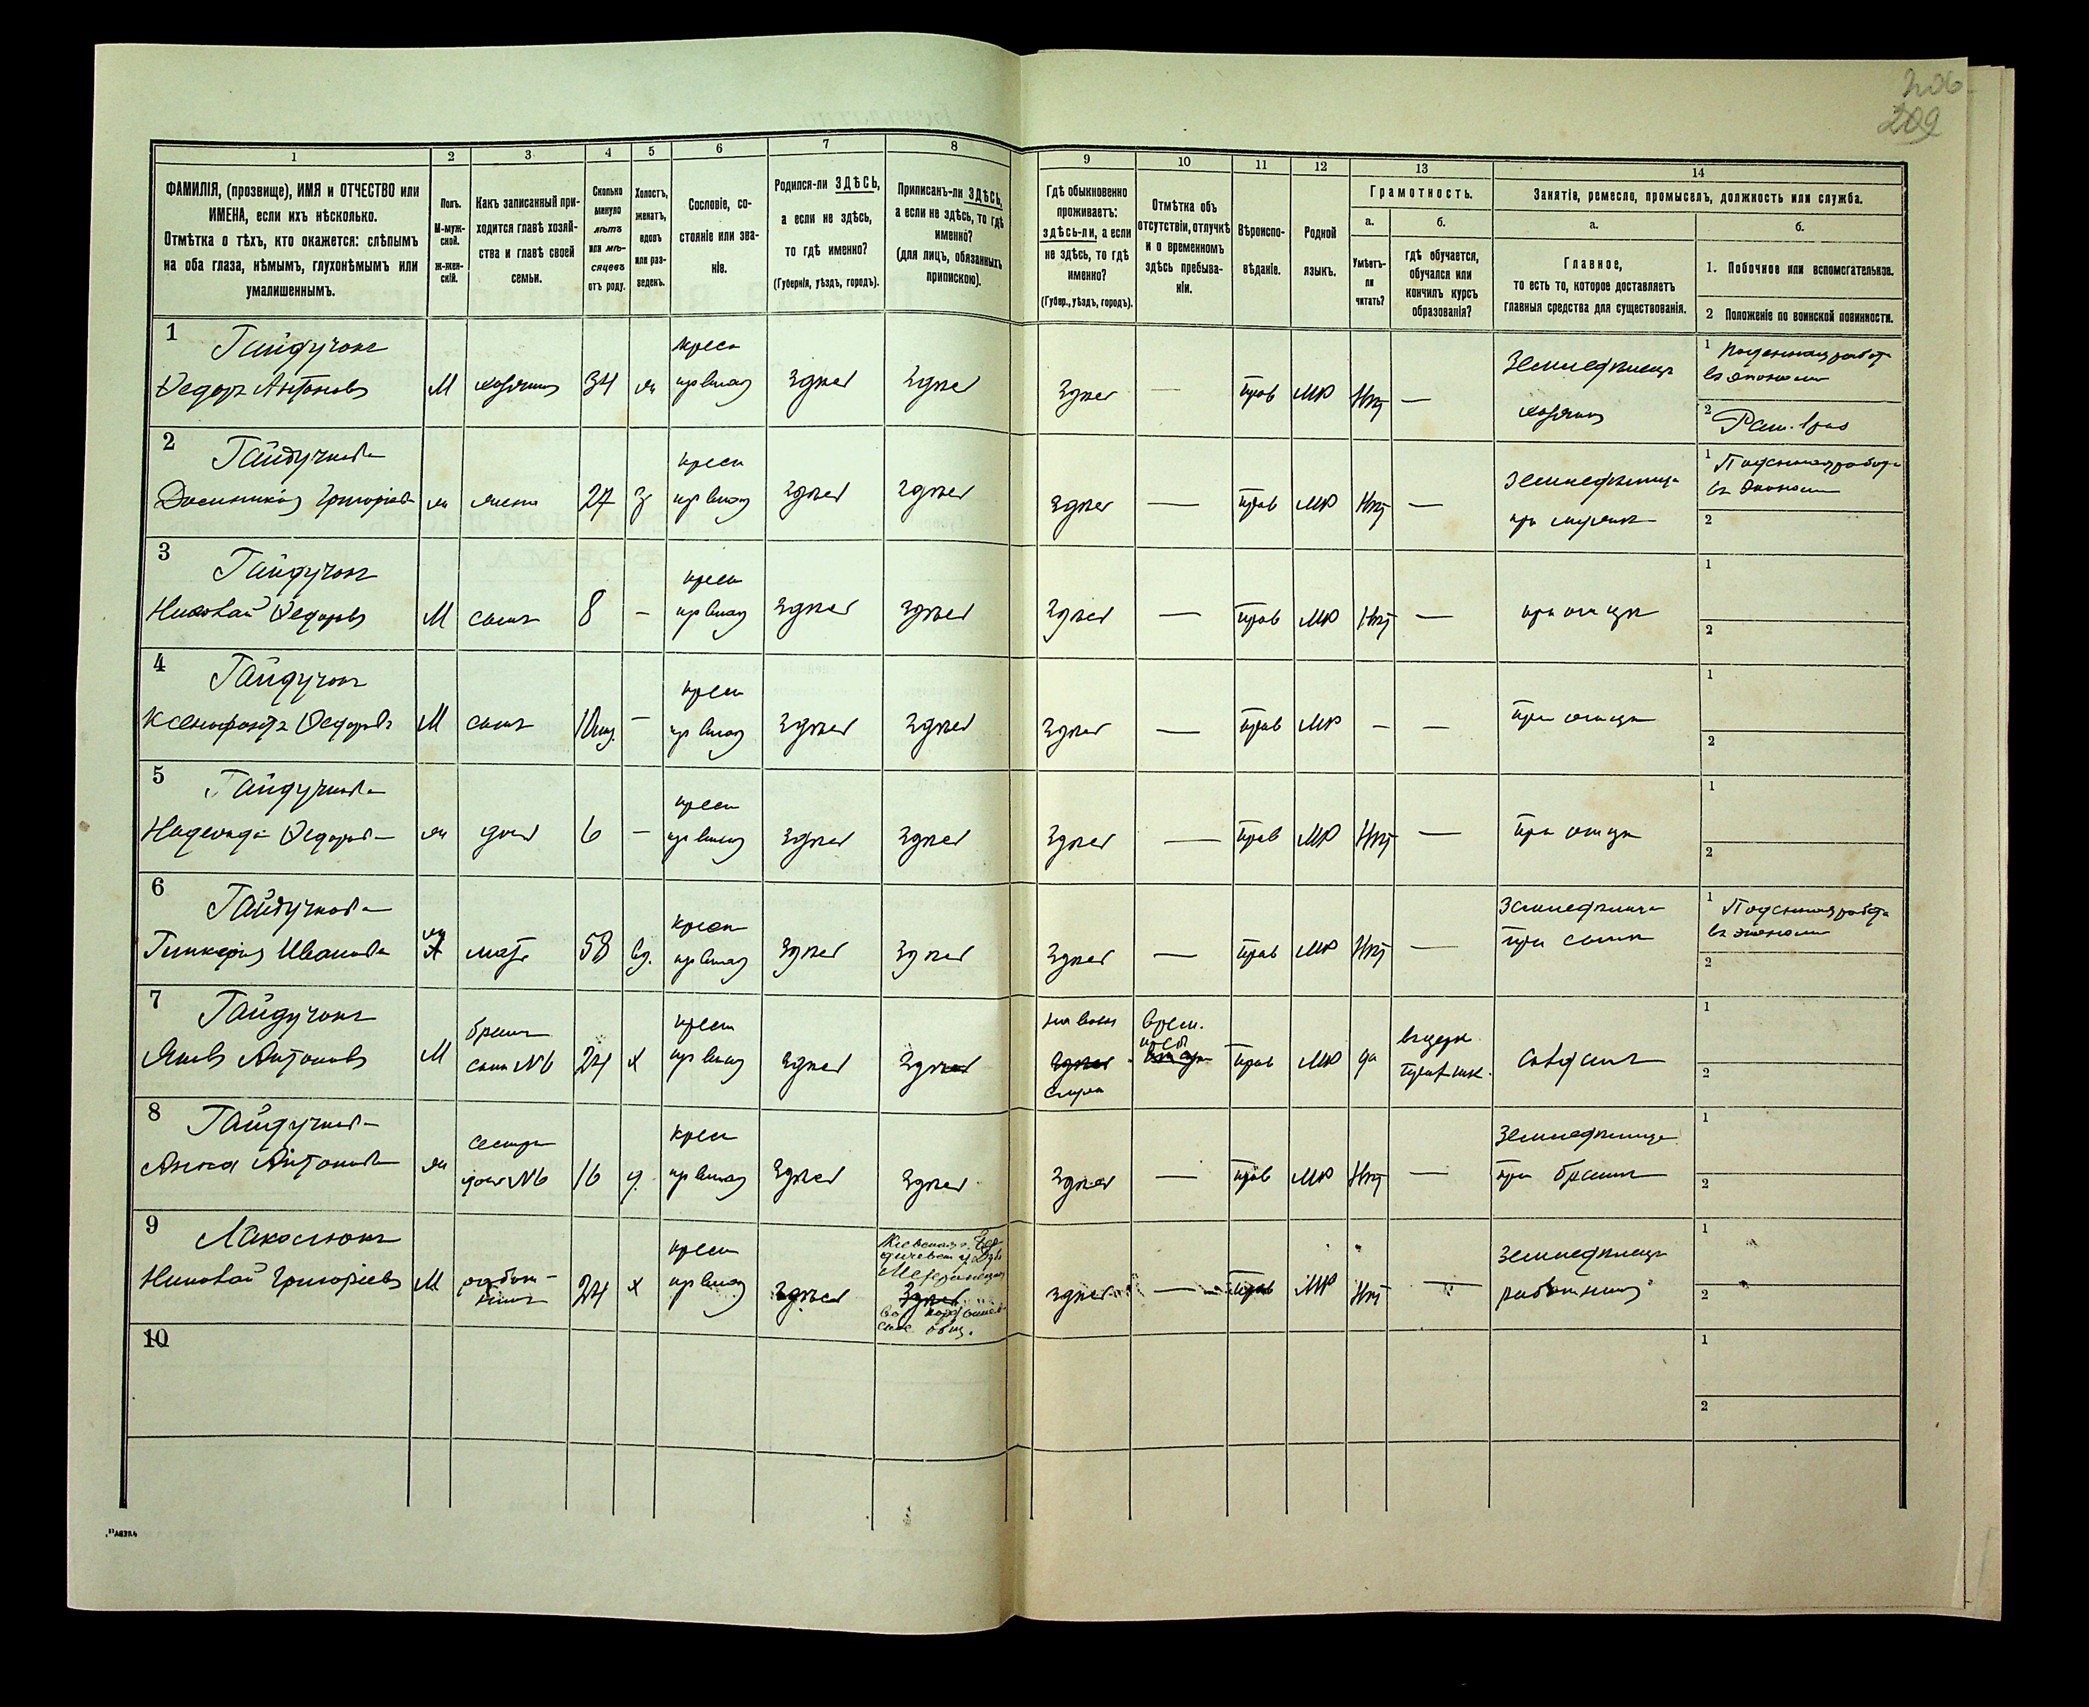 206
209
1 2 3 4 5 6 7 8 9 10 11 12 13 14
ФАМИЛІЯ, (прозвище), ИМЯ и ОТЧЕСТВО или
ИМЕНА, если ихъ нѣсколько.
Отмѣтка о тѣхъ, кто окажется: слѣпымъ
на оба глаза, нѣмымъ, глухонѣмымъ или
умалишеннымъ.
Полъ.
М-муж-
ской.
ж-жен-
скій.
Какъ записанный при-
ходится главѣ хозяй-
ства и главѣ своей
семьи.
Сколько
минуло
лѣтъ
или мѣ-
сяцевъ
отъ роду.
Холостъ,
женатъ,
вдовъ
или раз-
веденъ.
Сословіе, со-
стояніе или зва-
ніе.
Родился-ли ЗДѢСЬ,
а если не здѣсь,
то гдѣ именно?
(Губернія, уѣздъ, городъ).
Приписанъ-ли ЗДѢСЬ,
а если не здѣсь, то гдѣ
именно?
(для лицъ, обязанныхъ
припискою).
Гдѣ обыкновенно
проживаетъ:
здѣсь-ли, а если
не здѣсь, то гдѣ
именно?
(Губер., уѣздъ, городъ).
Отмѣтка объ
отсутствіи, отлучкѣ
и о временномъ
здѣсь пребыва-
ніи.
Вѣроиспо-
вѣданіе.
Родной
языкъ.
Грамотность.
а.
Умѣетъ-
ли
читать?
б.
гдѣ обучается,
обучался или
кончилъ курсъ
образованія?
Занятіе, ремесло, промыселъ, должность или служба.
а.
Главное,
то есть то, которое доставляетъ
главныя средства для существованія.
б.
1. Побочное или вспомогательное.
2 Положеніе по воинской повинности.
1 Гайдучокъ
Федоръ Антоновъ М хозяинъ 34 ж крест здѣсь здѣсь здѣсь — прав МР Нѣт —
Земледѣлецъ
хозяинъ
1 Поденная работа
въ экономіи
2
2 Гайдучкова
Григоріева ж жена 27 з крест здѣсь здѣсь здѣсь — прав МР Нѣт —
Земледѣлица
при мужѣ
1 Поденная работа
въ экономіи
2
3 Гайдучокъ
Николай Федоровъ М сынъ 8 — крест здѣсь здѣсь здѣсь — прав МР Нѣт — при отцѣ
1
2
4 Гайдучокъ
Ксенофонтъ Федоровъ М сынъ — крест здѣсь здѣсь здѣсь — прав МР — — при отцѣ
1
2
5 Гайдучкова
Надежда Федорова ж дочь 6 — крест здѣсь здѣсь здѣсь — прав МР Нѣт — при отцѣ
1
2
6 Гайдучкова
Гликерія Иванова ж мать 58 вд. крест здѣсь здѣсь здѣсь — прав МР Нѣт —
при сынѣ
1 Поденная работа
въ экономіи
2
7 Гайдучокъ
Яковъ Антоновъ М братъ
сынъ №6 24 х крест здѣсь здѣсь здѣсь
врем. прав МР да въ церк
1
2
8 Гайдучкова
Анна Антонова ж сестра
дочь №6 16 д. крест здѣсь здѣсь здѣсь — прав МР Нѣт —
Земледѣлица
при братѣ
1
2
9
Николай Григорьевъ М работ-
никъ 24 х крест здѣсь
Кіевская г. Бер-
здѣсь
общ.
здѣсь — прав МР Нѣт —
Земледѣлецъ
работникъ
1
2
10
1
2